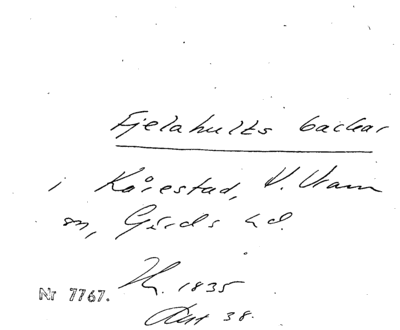 Fjelahults backar
i Kårestad, V. Vram
sn, Gärds hd.
1835
Nr 7767.
38.